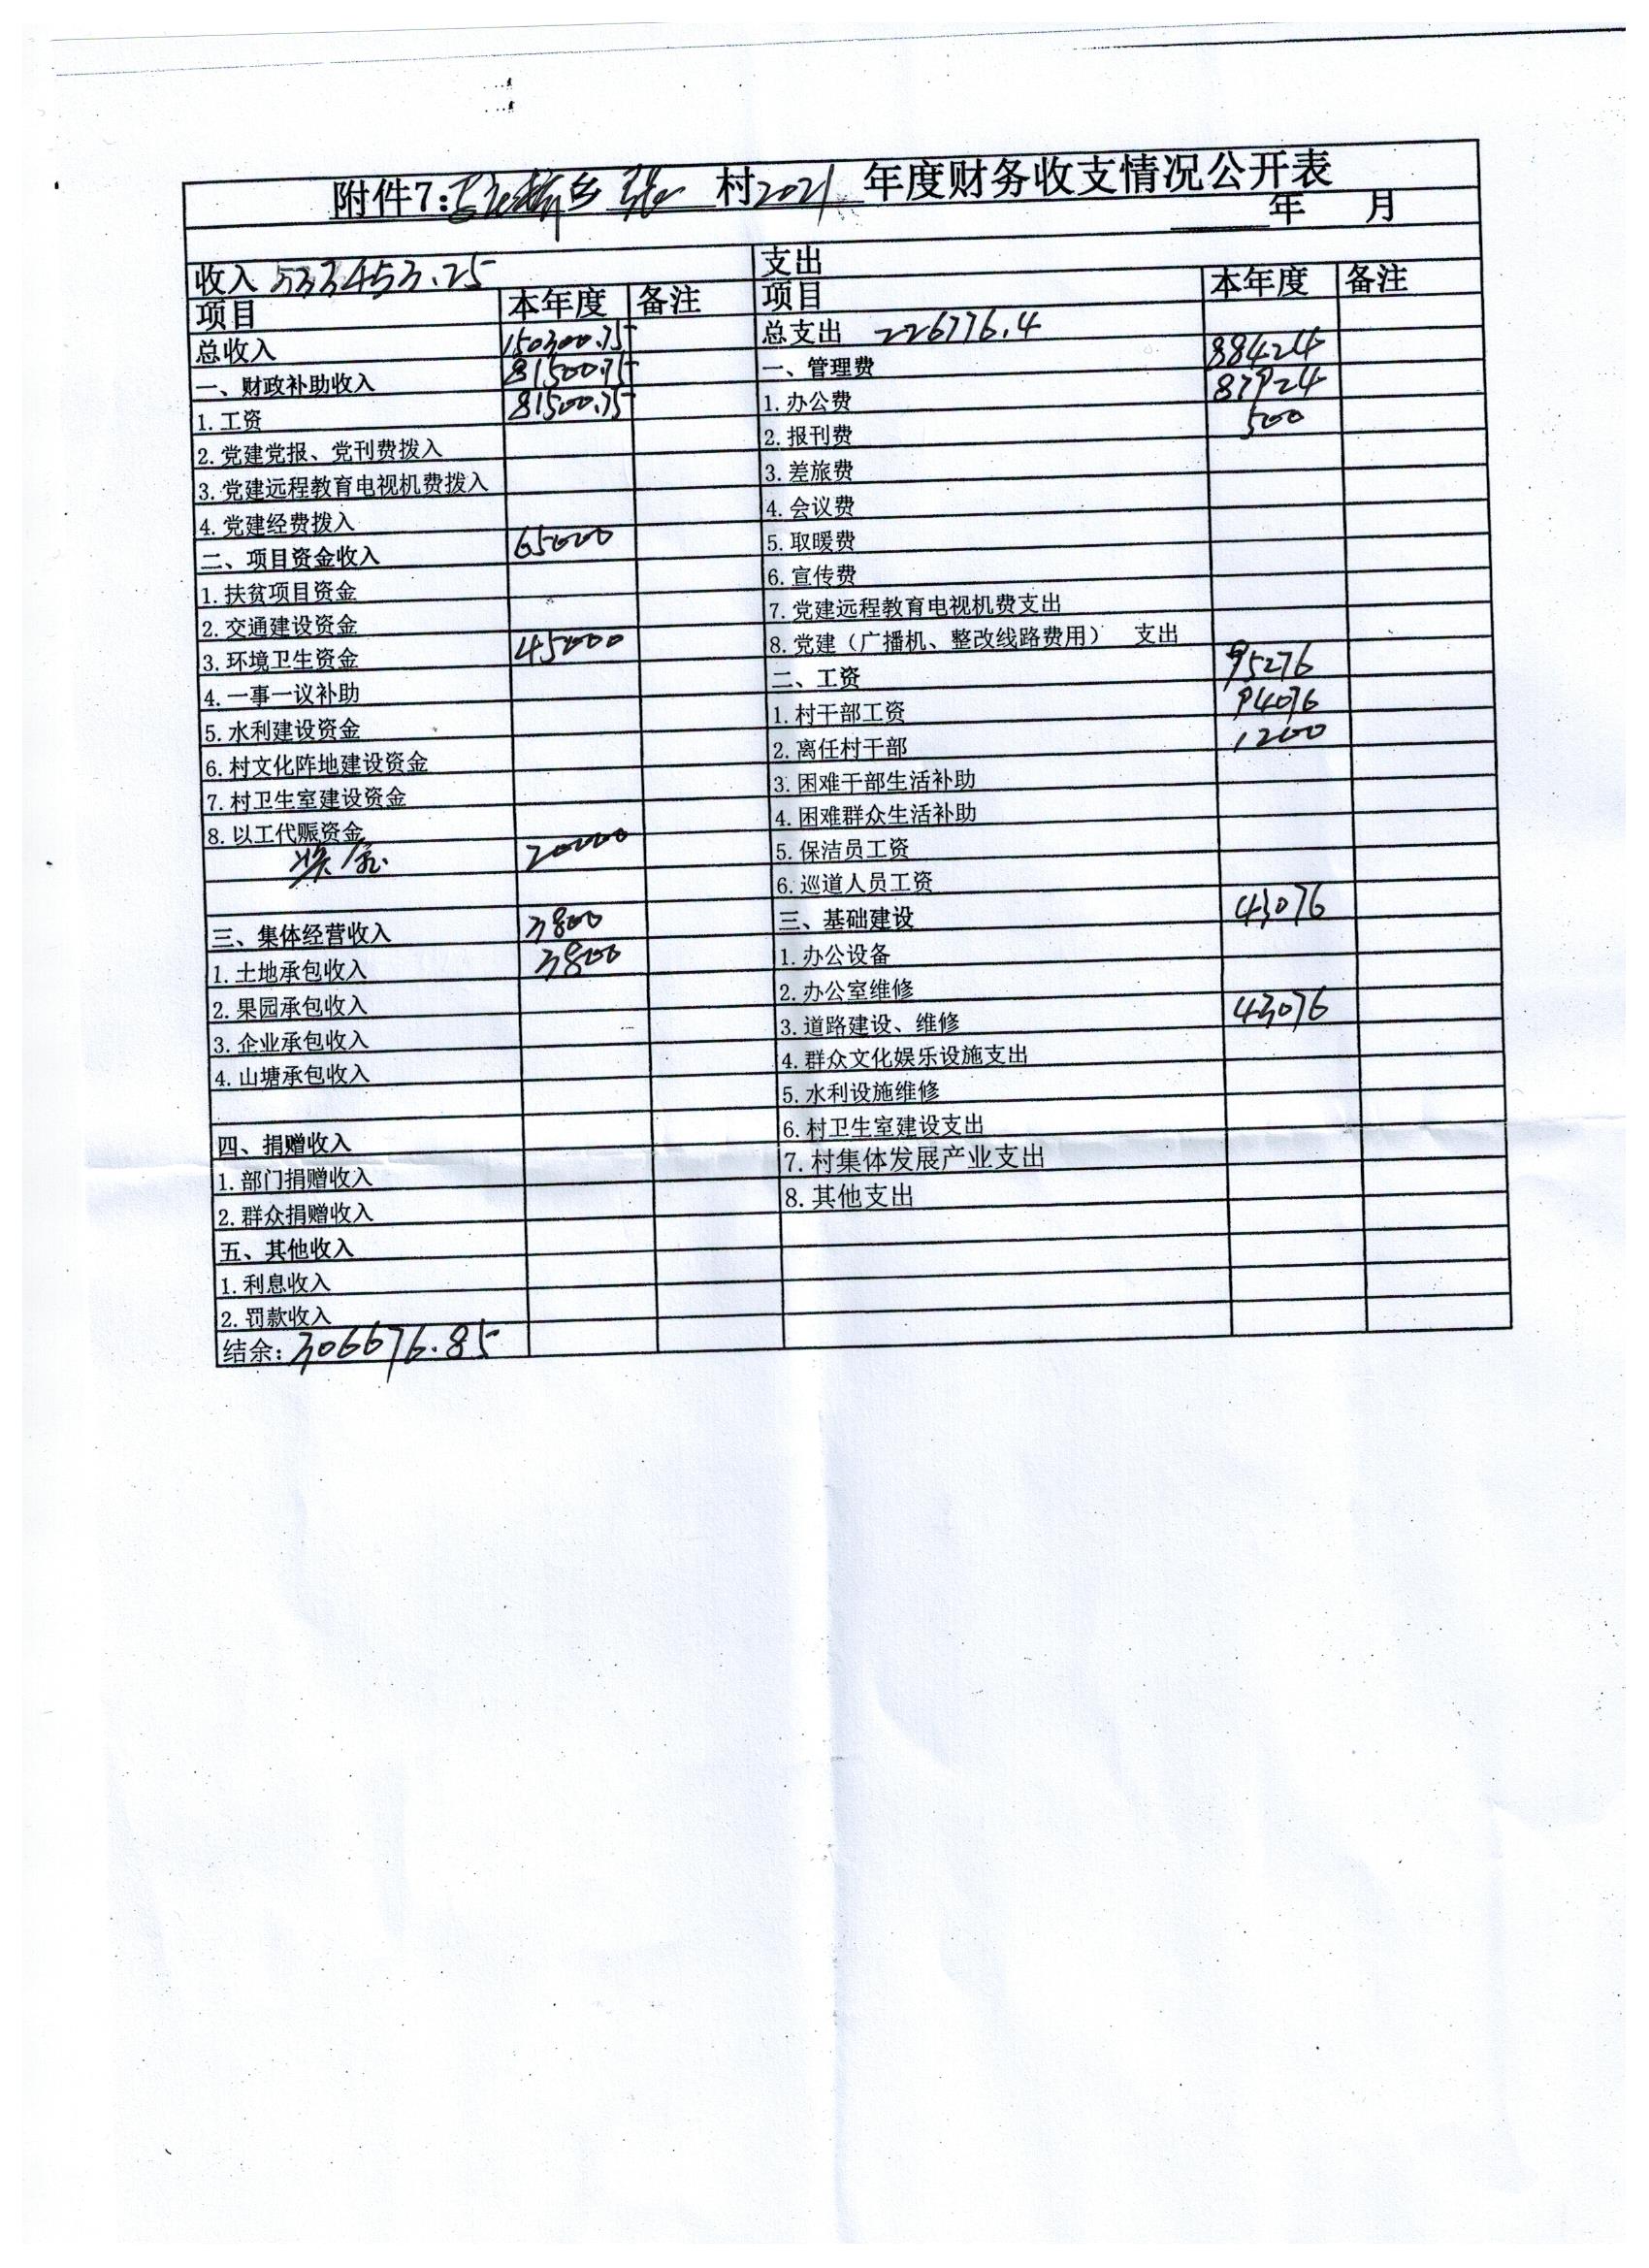 附件7: 村2021 年度财务收支情况公开表
年 月
收入 533453.25 支出
项目 本年度 备注 项目 本年度 备注
总收入 150300.75 总支出 226776.4
一、财政补助收入 81500.75 一、管理费 88424
1.工资 81500.75 1.办公费 87924
2.党建党报、党刊费拨入 2.报刊费 500
3.党建远程教育电视机费拨入 3.差旅费
4.党建经费拨入 4.会议费
二、项目资金收入 65000 5.取暖费
1.扶贫项目资金 6.宣传费
2.交通建设资金 7.党建远程教育电视机费支出
3.环境卫生资金 45000 8.党建（广播机、整改线路费用） 支出
4.一事一议补助 二、工资 95276
5.水利建设资金 1.村干部工资 94076
6.村文化阵地建设资金 2.离任村干部 1200
7.村卫生室建设资金 3.困难干部生活补助
8.以工代赈资金 4.困难群众生活补助
奖金 20000 5.保洁员工资
6.巡道人员工资
三、集体经营收入 3800 三、基础建设 43076
1.土地承包收入 3800 1.办公设备
2.果园承包收入 2.办公室维修
3.企业承包收入 3.道路建设、维修 43076
4.山塘承包收入 4.群众文化娱乐设施支出
5.水利设施维修
四、捐赠收入 6.村卫生室建设支出
1.部门捐赠收入 7.村集体发展产业支出
2.群众捐赠收入 8.其他支出
五、其他收入
1.利息收入
2.罚款收入
结余:306676.85